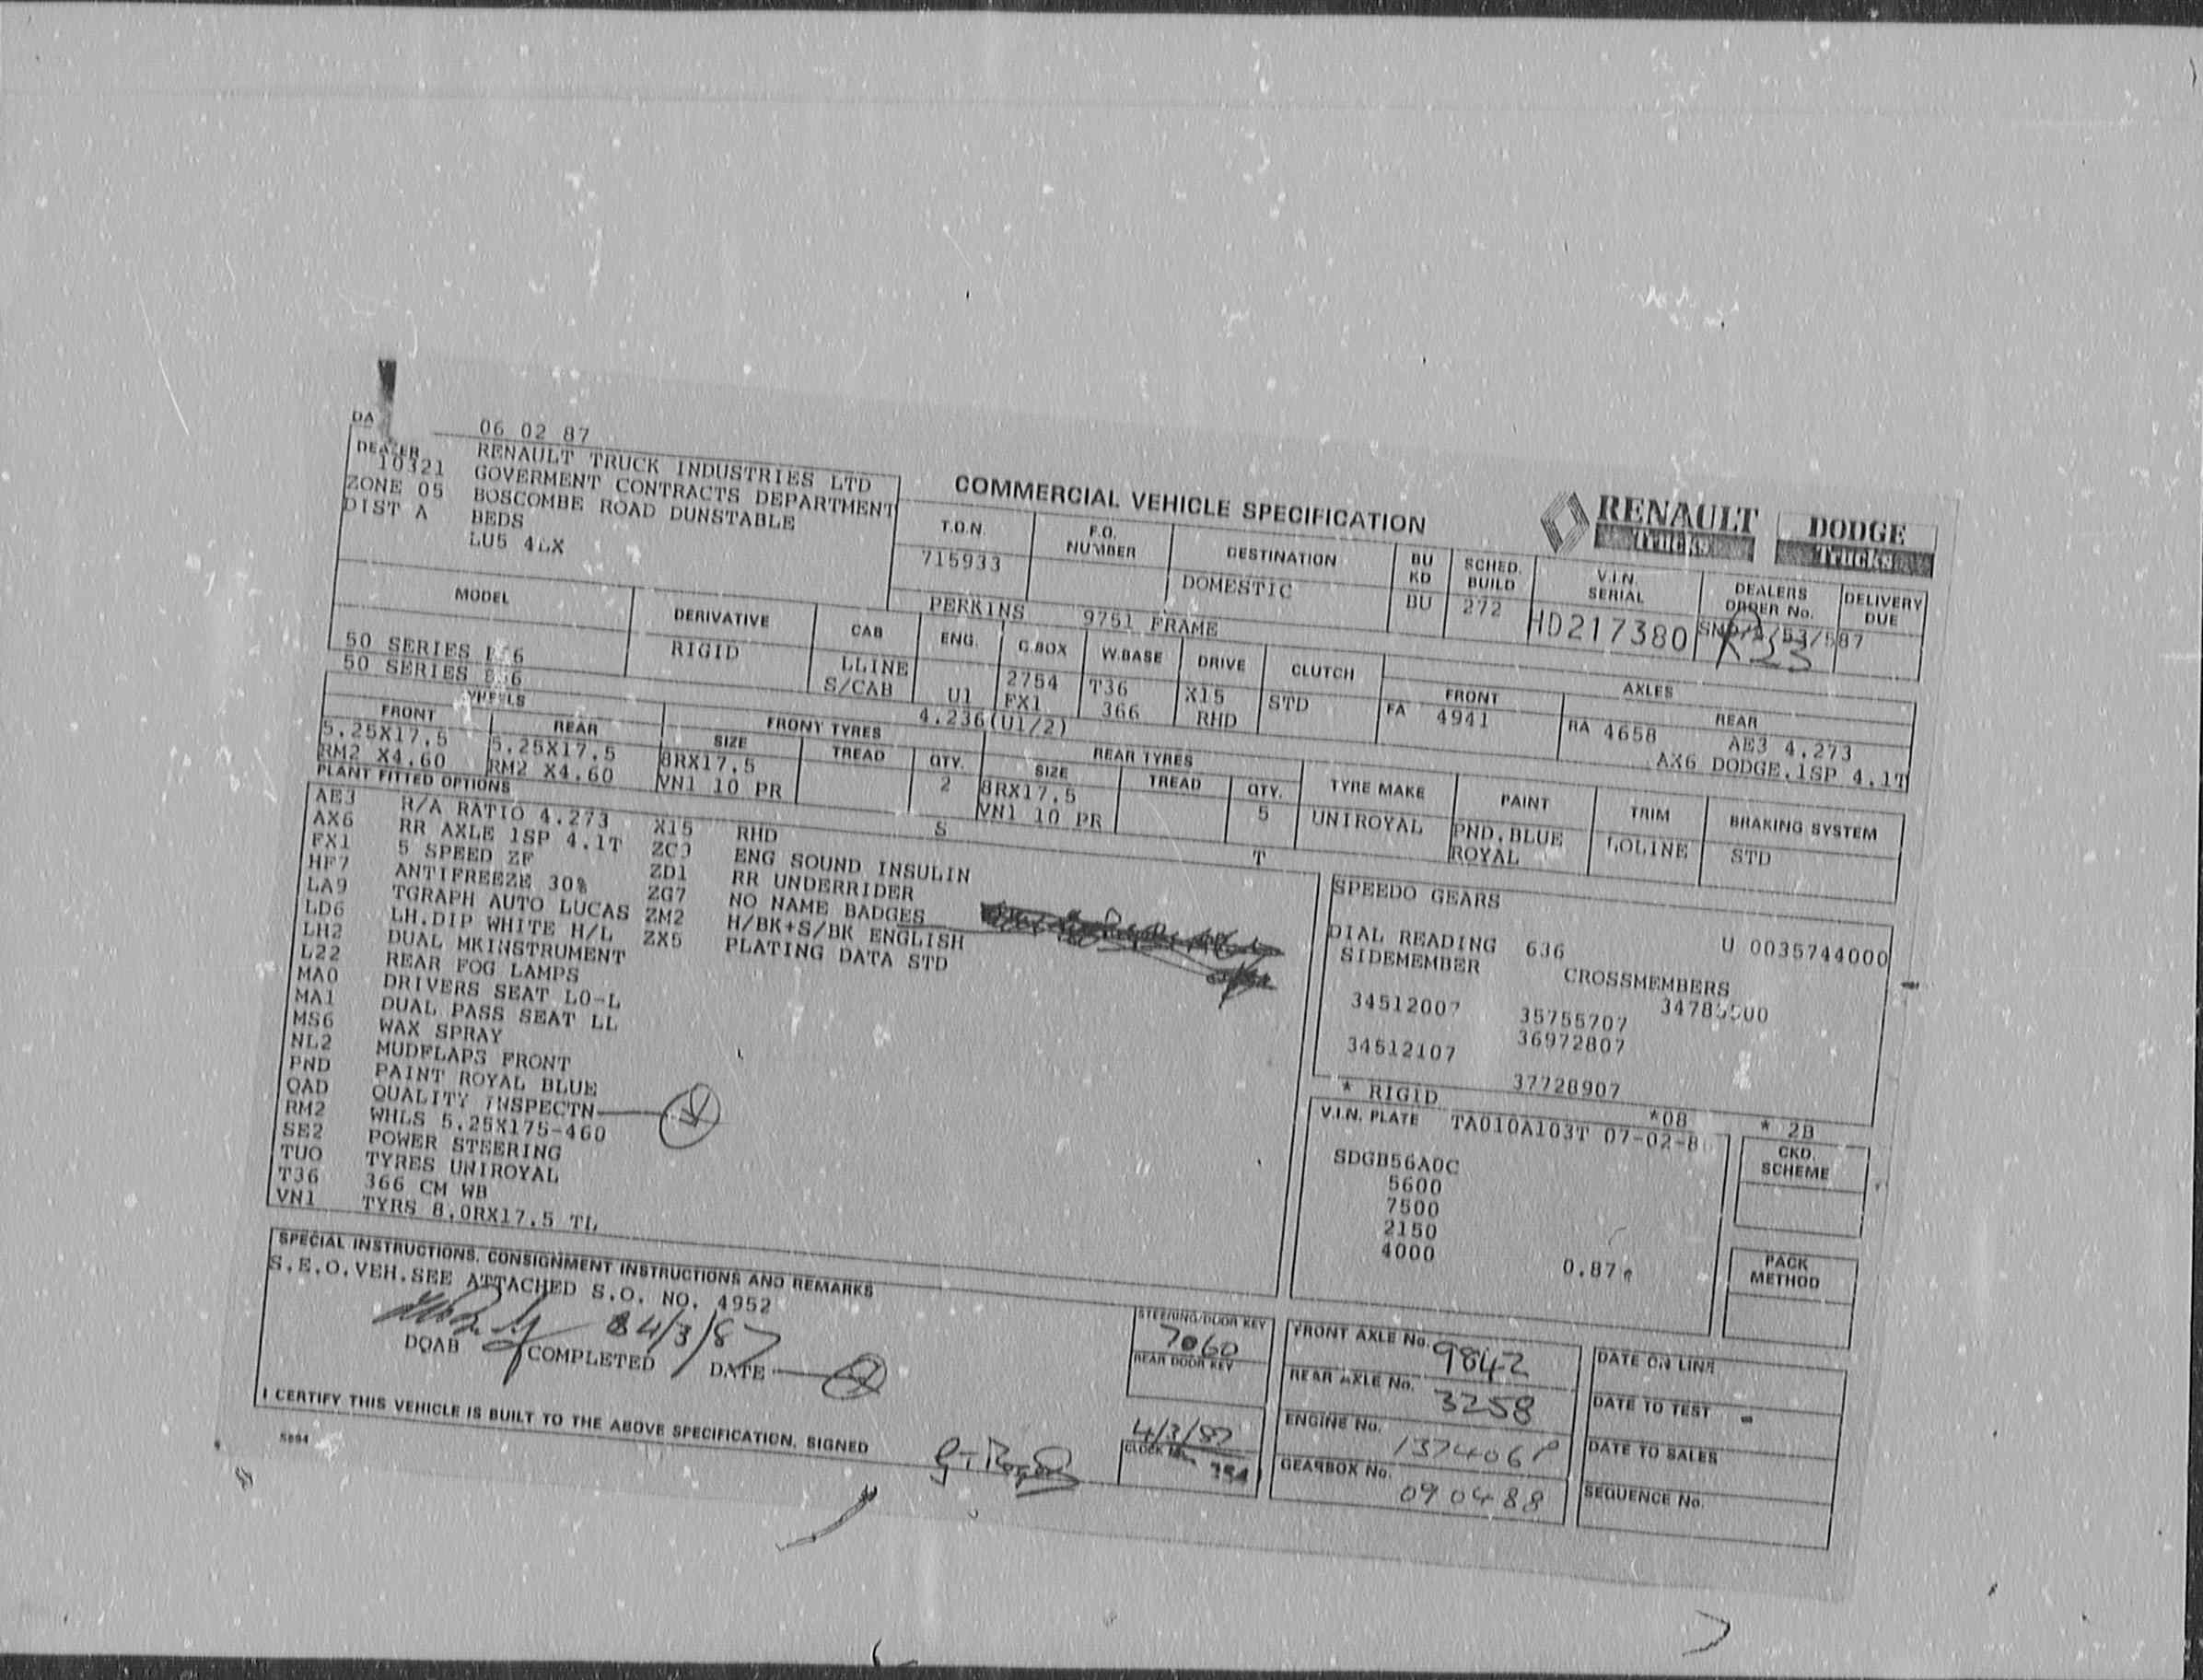 DA
06 02 87
DEALER
10321
RENAULT TRUCK INDUSTRIES LTD
GOVERMENT CONTRACTS DEPARTMENT
ZONE 05 BOSCOMBE ROAD DUNSTABLE
DIST A BEDS
LU5 4LX
COMMERCIAL VEHICLE SPECIFICATION
RENAULT Trucks DODGE Trucks
T.O.N. F.O. NUMBER DESTINATION BU KD SCHED. BUILD V.I.N. SERIAL DEALERS ORDER No. DELIVERY DUE
715933 DOMESTIC BU 272 HD217380
PERKINS 9751 FRAME
MODEL DERIVATIVE CAB ENG. G.BOX W.BASE DRIVE CLUTCH AXLES
FRONT REAR
50 SERIES RIGID LLINE 2754 T36 X15 STD FA 4941 RA 4658 AE3 4.273
50 SERIES S/CAB U1 FX1 366 RHD AX6 DODGE.1SP 4.1T
4.236(U1/2)
WHEELS FRONT TYRES REAR TYRES TYRE MAKE PAINT TRIM BRAKING SYSTEM
FRONT REAR SIZE TREAD QTY. SIZE TREAD QTY.
5.25X17.5 5.25X17.5 8RX17.5 2 8RX17.5 5 UNIROYAL PND.BLUE LOLINE STD
RM2 X4.60 RM2 X4.60 VN1 10 PR VN1 10 PR ROYAL
PLANT FITTED OPTIONS
S T
AE3 R/A RATIO 4.273 X15 RHD
AX6 RR AXLE 1SP 4.1T ENG SOUND INSULIN
FX1 5 SPEED ZF ZD1 RR UNDERRIDER
HF7 ANTIFREEZE 30% ZG7 NO NAME BADGES
LA9 TGRAPH AUTO LUCAS ZM2 H/BK+S/BK ENGLISH
LD6 LH.DIP WHITE H/L ZX5 PLATING DATA STD
LH2 DUAL MKINSTRUMENT
L22 REAR FOG LAMPS
MA0 DRIVERS SEAT LO-L
MA1 DUAL PASS SEAT LL
MS6 WAX SPRAY
NL2 MUDFLAPS FRONT
PND PAINT ROYAL BLUE
QAD QUALITY INSPECTN
RM2 WHLS 5.25X175-460
SE2 POWER STEERING
TUO TYRES UNIROYAL
T36 366 CM WB
VN1 TYRS 8.0RX17.5 TL
SPEEDO GEARS
DIAL READING 636 U 0035744000
SIDEMEMBER CROSSMEMBERS
34512007 35755707
36972807
34512107
37728907
* RIGID *08 * 2B
V.I.N. PLATE TA010A103T 07-02-8
SDGB56A0C
5600
7500
2150
4000 0.87
CKD. SCHEME
PACK METHOD
SPECIAL INSTRUCTIONS, CONSIGNMENT INSTRUCTIONS AND REMARKS
S.E.O.VEH.SEE ATTACHED S.O. NO. 4952
4/3/87
DQAB COMPLETED DATE
STEERING/DOOR KEY
7060
REAR DOOR KEY
4/3/87
CLOCK No.
FRONT AXLE No. 9842
REAR AXLE No. 3258
ENGINE No. 137406P
GEARBOX No. 090488
DATE ON LINE
DATE TO TEST
DATE TO SALES
SEQUENCE No.
I CERTIFY THIS VEHICLE IS BUILT TO THE ABOVE SPECIFICATION, SIGNED
5894